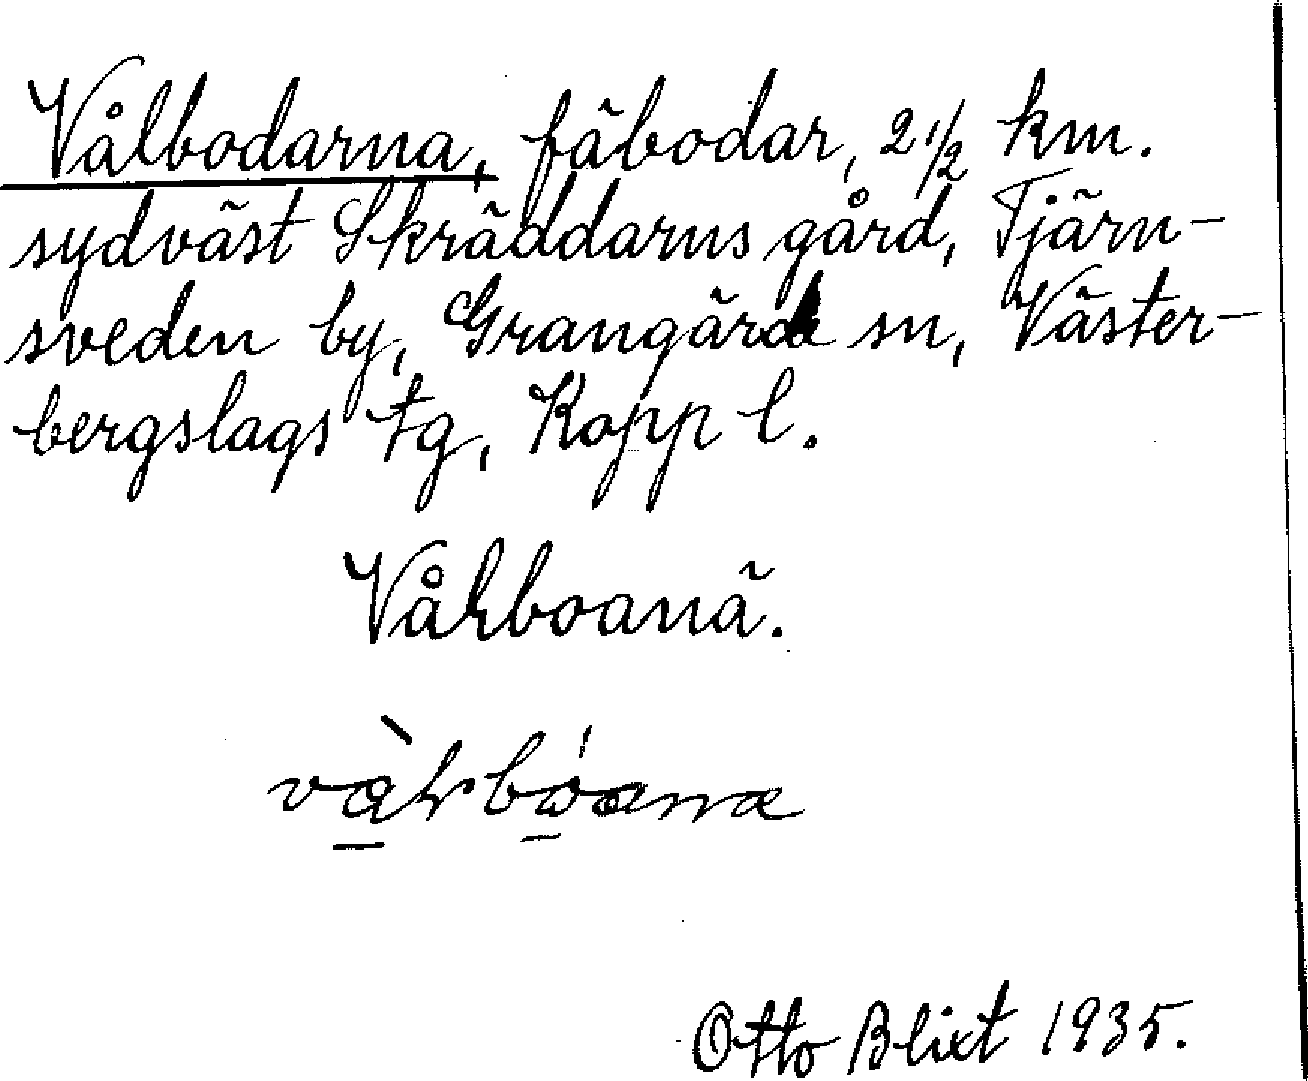 Vålbodarna, fäbodar, 2 1/2 km.
sydväst Skräddarns gård, Tjärn-
sveden by, Grangärde sn, Väster-
bergslags tg, Kopp l.
Vålboanä.
Otto Blixt 1935.